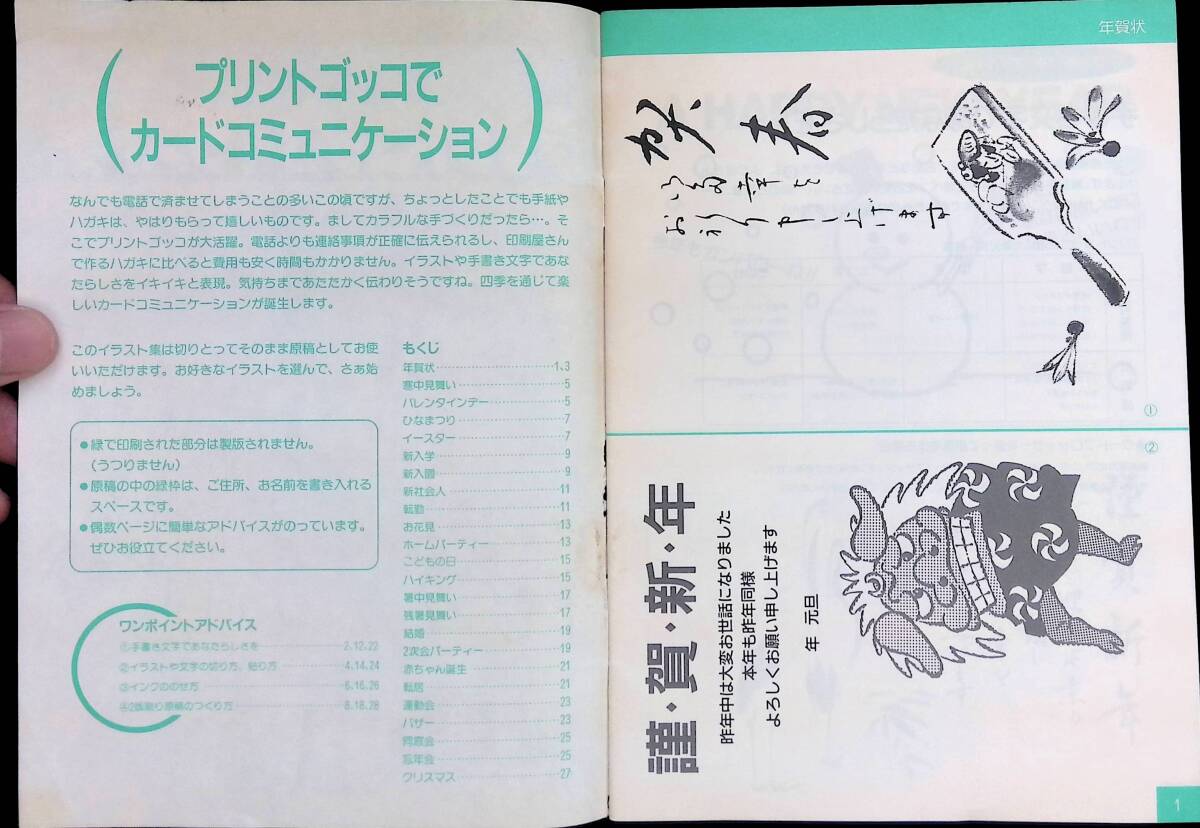 プリントゴッコで
カードコミュニケーション
なんでも電話で済ませてしまうことの多いこの頃ですが、ちょっとしたことでも手紙や
ハガキは、やはりもらって嬉しいものです。ましてカラフルな手づくりだったら…。そ
こでプリントゴッコが大活躍。電話よりも連絡事項が正確に伝えられるし、印刷屋さん
で作るハガキに比べると費用も安く時間もかかりません。イラストや手書き文字であな
たらしさをイキイキと表現。気持ちまであたたかく伝わりそうですね。四季を通じて楽
しいカードコミュニケーションが誕生します。
このイラスト集は切りとってそのまま原稿としてお使
いいただけます。お好きなイラストを選んで、さぁ始
めましょう。
●緑で印刷された部分は製版されません。
(うつりません)
●原稿の中の緑枠は、ご住所、お名前を書き入れる
スペースです。
●偶数ページに簡単なアドバイスがのっています。
ぜひお役立てください。
ワンポイントアドバイス
①手書き文字であなたらしさを 2,12,22
②イラストや文字の切り方、貼り方 4,14,24
③インクののせ方 6,16,26
④2版刷り原稿のつくり方 8,18,28
もくじ
年賀状 1、3
寒中見舞い 5
バレンタインデー 5
ひなまつり 7
イースター 7
新入学 9
新入園 9
新社会人 11
転勤 11
お花見 13
ホームパーティー 13
こどもの日 15
ハイキング 15
暑中見舞い 17
残暑見舞い 17
結婚 19
2次会パーティー 19
赤ちゃん誕生 21
転居 21
運動会 23
バザー 23
同窓会 25
忘年会 25
クリスマス 27
年賀状
賀春
ご多幸を
お祈り申し上げます
①
②
謹・賀・新・年
昨年中は大変お世話になりました
本年も昨年同様
よろしくお願い申し上げます
年 元旦
1